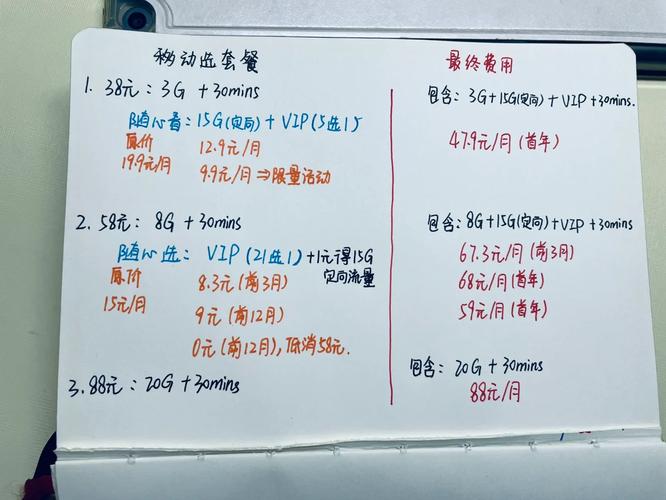 移动选套餐
1. 38元：3G + 30mins
随心看：15G(定向) + VIP(5选1)
原价 12.9元/月
19.9元/月 9.9元/月 ⇒ 限量活动
2. 58元：8G + 30mins
随心选：VIP(21选1) +1元得15G
定向流量
原价 8.3元(前3月)
15元/月 9元(前12月)
0元(前12月), 低消58元.
3. 88元：20G + 30mins
最终费用
包含：3G+15G(定向)+VIP+30mins.
47.9元/月(首年)
包含：8G+15G(定向)+VIP+30mins
67.3元/月(前3月)
68元/月(首年)
59元/月(首年)
包含：20G + 30mins
88元/月